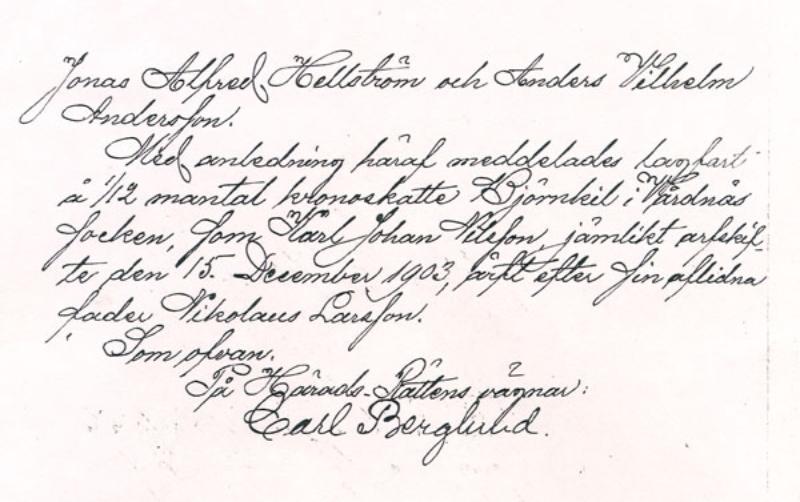 Jonas Alfred Hellström och Anders Vilhelm
Andersson.
Med anledning häraf meddelades lagfart
å 1/12 mantal kronoskatte Björnkil i Vårdnäs
socken, som Karl Johan Nilsson, jämlikt arfskif-
te den 15. December 1903, ärft efter sin aflidna
fader Nikolaus Larsson.
Som ofvan.
På Härads-Rättens vägnar:
Carl Berglund.